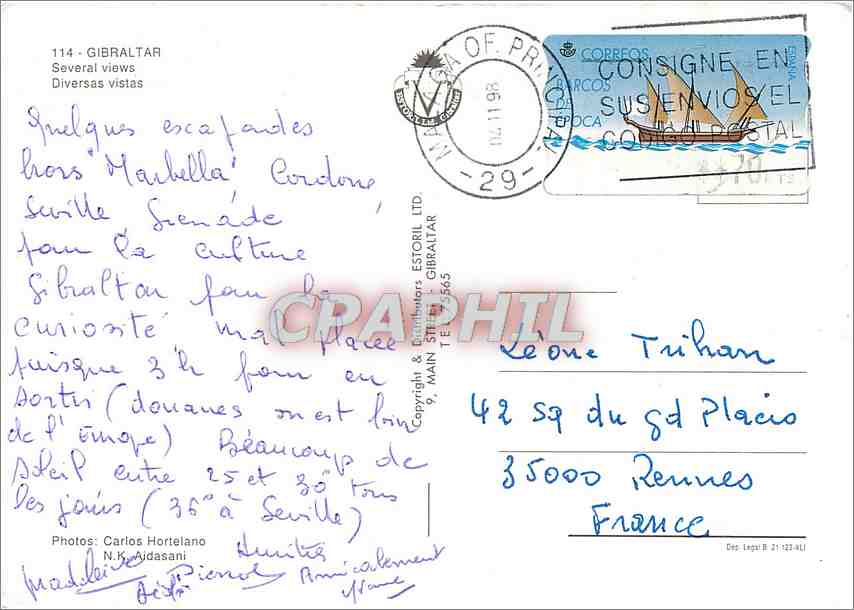 114 - GIBRALTAR
Several views
Diversas vistas
Quelques escapades
hors "Marbella" Cordoue,
Seville, Grenade
pour la culture
Gibraltar pour la
curiosité mal placée
puisque 3 h pour en
sortir (douanes on est loin
de l'Europe) Beaucoup de
soleil entre 25 et 30° tous
les jours (36° à Seville)
Photos: Carlos Hortelano
N.K. Aidasani
Madeleine
Pierrot
Amitiés
Amicalement
Copyright & Distributors ESTORIL LTD.
9, MAIN STREET - GIBRALTAR
TEL 75565
MALAGA OF. PRINCIPAL
04 11 98
- 29 -
CORREOS
ESPAÑA
BARCOS
DE
EPOCA
CONSIGNE EN
SUS ENVIOS EL
CODIGO POSTAL
70 PTS
CPAPHIL
Léone Trihan
42 Sq du gd Placis
35000 Rennes
France
Dep. Legal B. 21.123-XLI